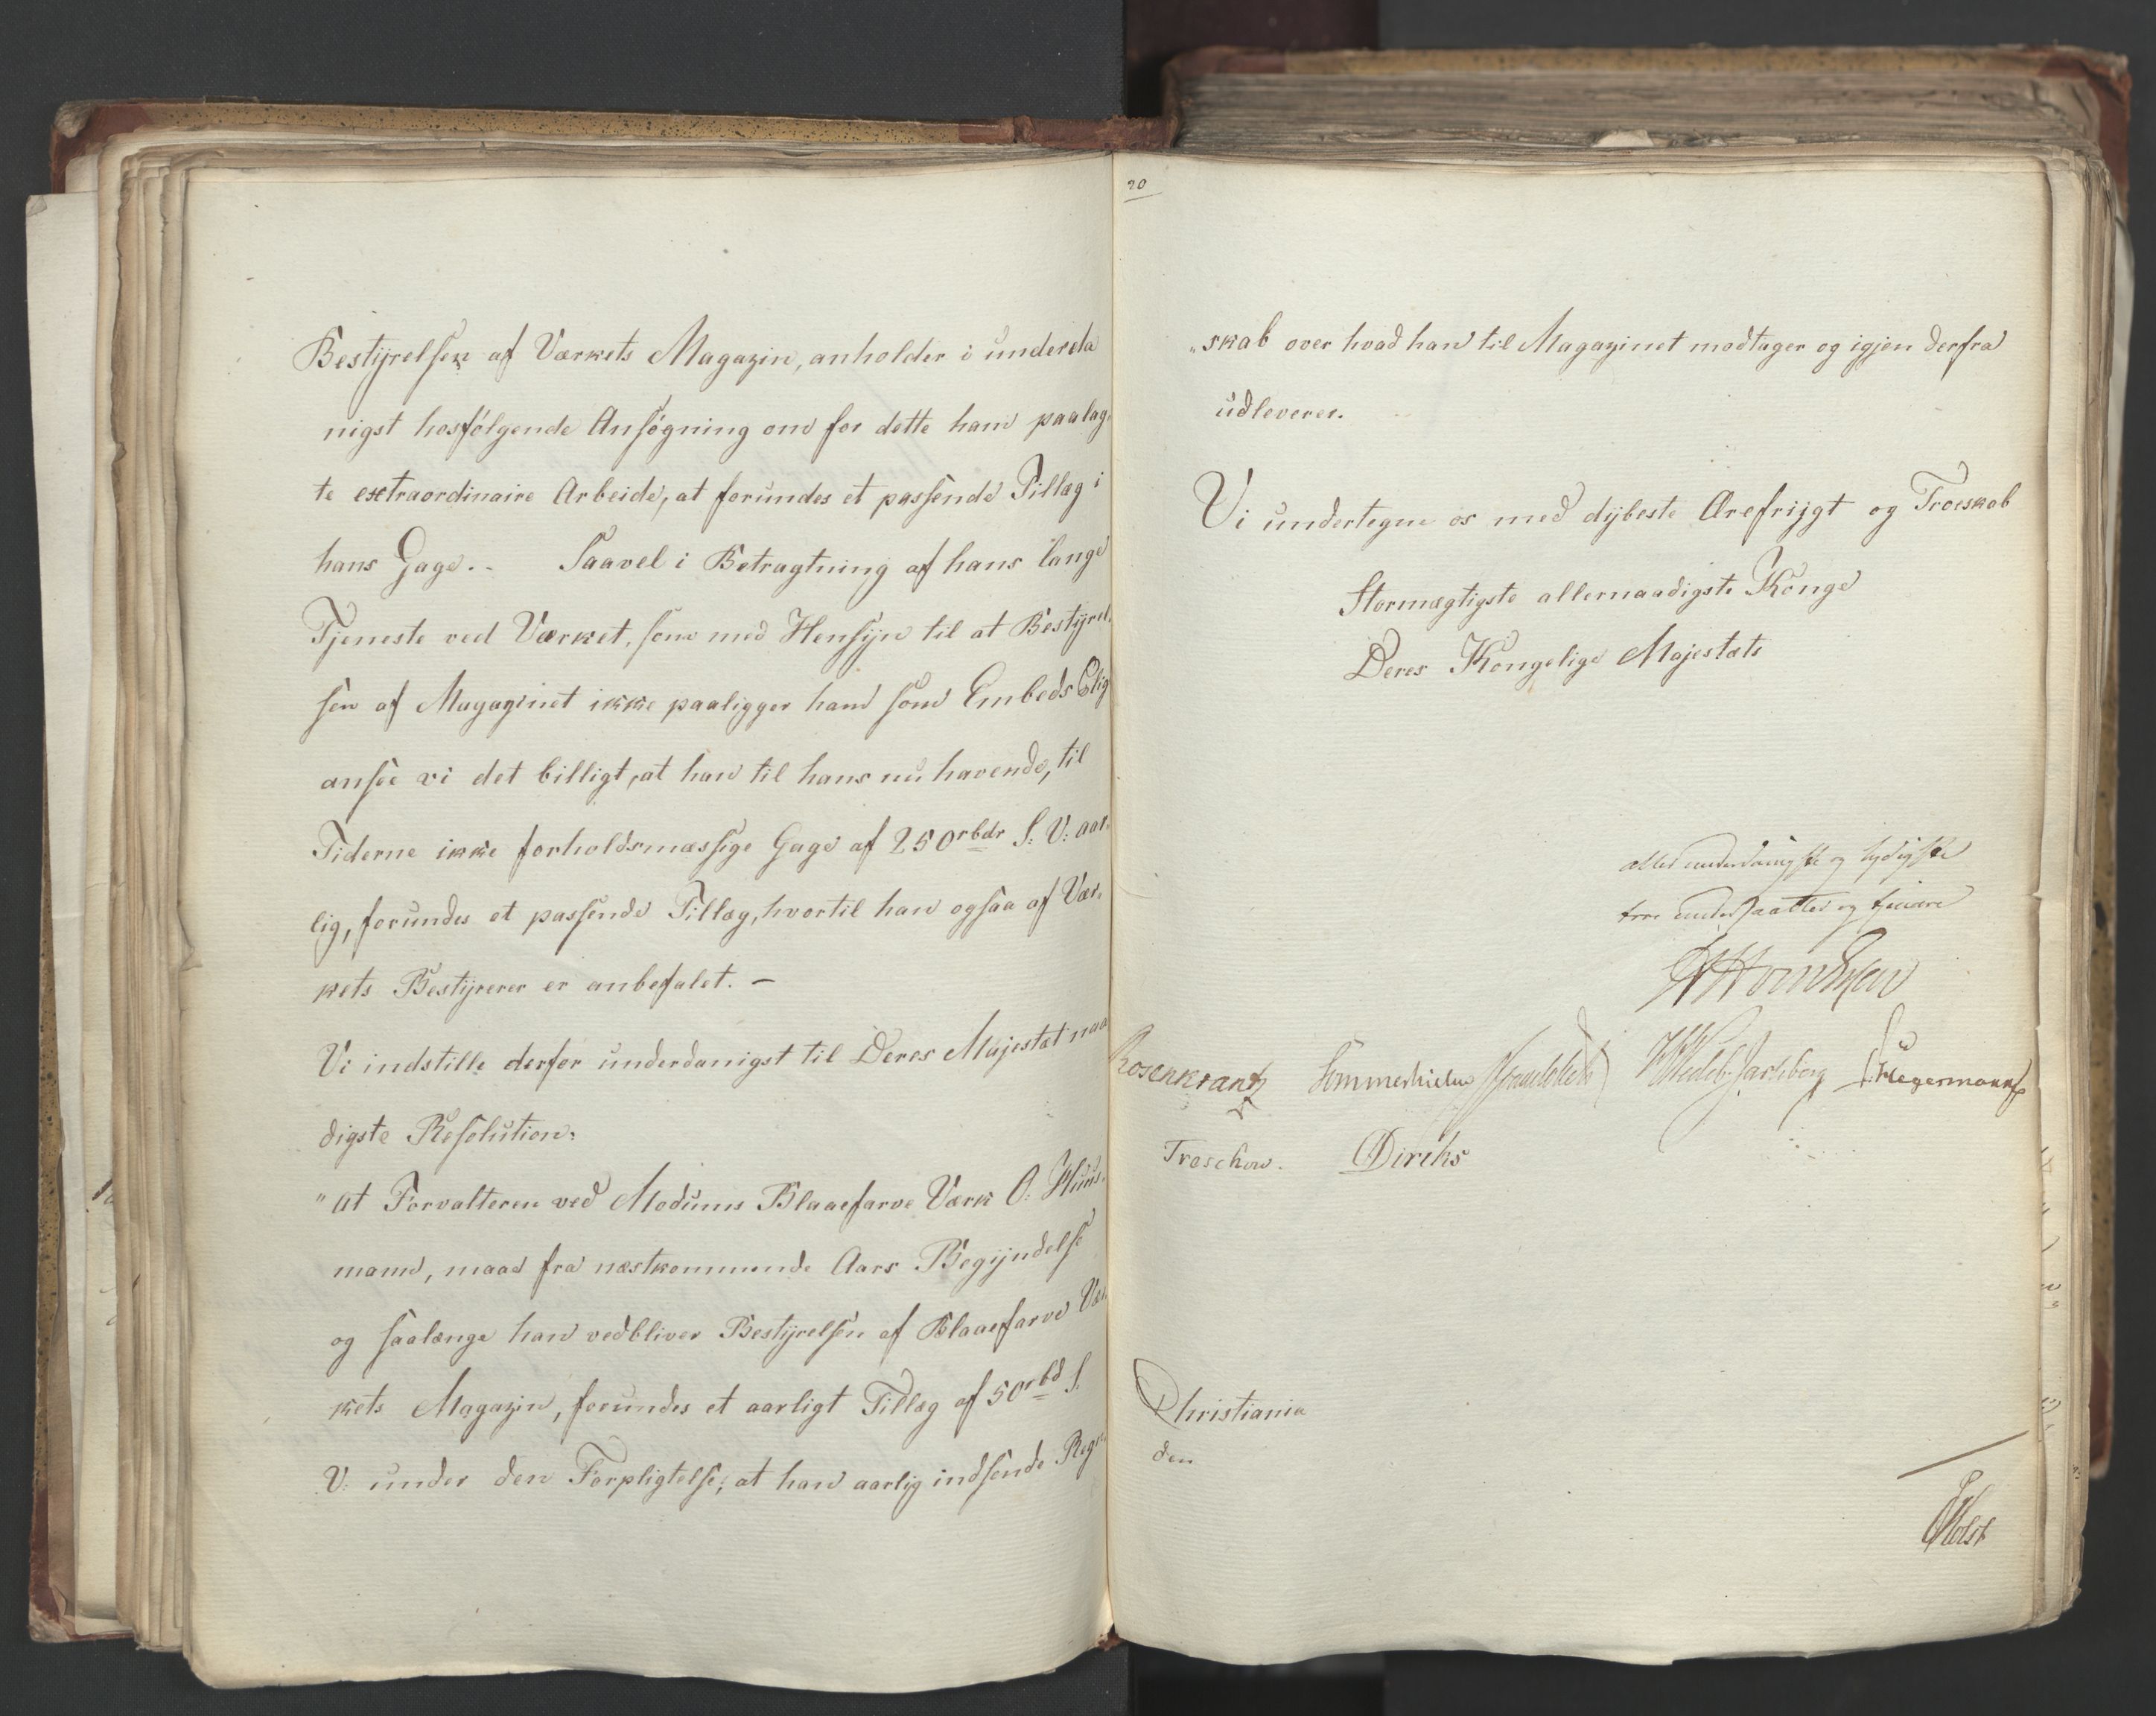 Bestyrelsen af Værkets Magazin, anholder i underda
nigst hosfølgende Ansøgning om for dette ham paalag,
te extraordinaire Arbeide, at forundes et passende Tillæg i
hans Gage.- Saavel i Betragtning af hans lange
Tjeneste ved Værket, som med Hensyn til at Bestyrel,
sen af Magazinet ikke paaligger ham som Embeds Plig
ansee vi det billigt, at han til hans nu havende, til
Tiderne ikke forholdsmæssige Gage af 250 rbdr S: V: aar,
lig, forundes et passende Tillæg, hvortil han ogsaa af Vær,
kets Bestyrerer er anbefalet. -
Vi indstille derfor underdanigst til Deres Majestæt naa
digste Resolution:
"At Forvalteren ved Modums Blaaefarve Værk O:
mand, maae fra næstkommende Aars Begyndelse
og saalænge han vedbliver Bestyrelsen af Blaaefarve Vær
kets Magazin, forundes et aarligt Tillæg af 50 rbd S.
V: under den Forpligtelse, at han aarlig indsende Regn
20
"skab over hvad han til Magazinet modtager og igjen derfra
udleverer.
Vi undertegne os med dybeste Ærefrygt og Troeskab
Stormægtigste allernaadigste Konge
Deres Kongelige Majestæts
allerunderdanigste og lydigste
troe undersaatter og tjenere
Rosenkrantz Sommerhielm Wedel Jarlsberg Hegermann
Treschow. Diriks
Christiania
den
Holst